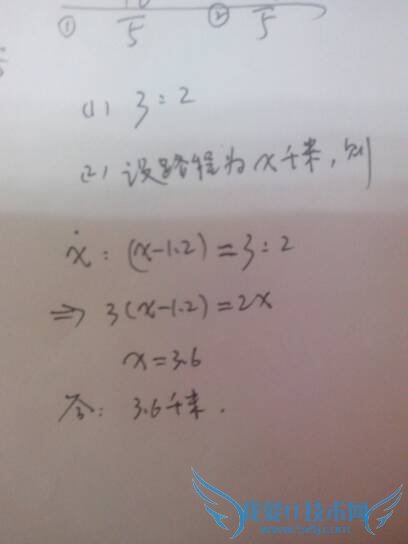 ① 5 ② 5
(1) 3:2
(2) 设路程为x千米,则
x:(x-1.2)=3:2
⇒ 3(x-1.2)=2x
x=3.6
答: 3.6千米.
我爱IT技术网